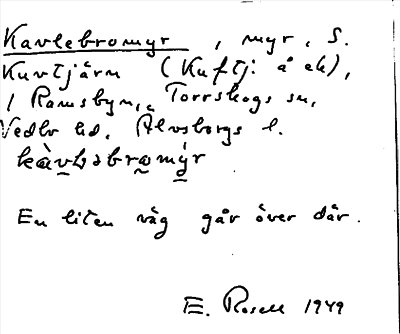 Kavlebromyr, myr, S.
Kuvtjärn (Kuftj. å ek),
i Ramsbyn, Torrskogs sn,
Vedbo hd, Älvsborgs l.
kàvləbromýr
En liten väg går över där.
E. Rosell 1949